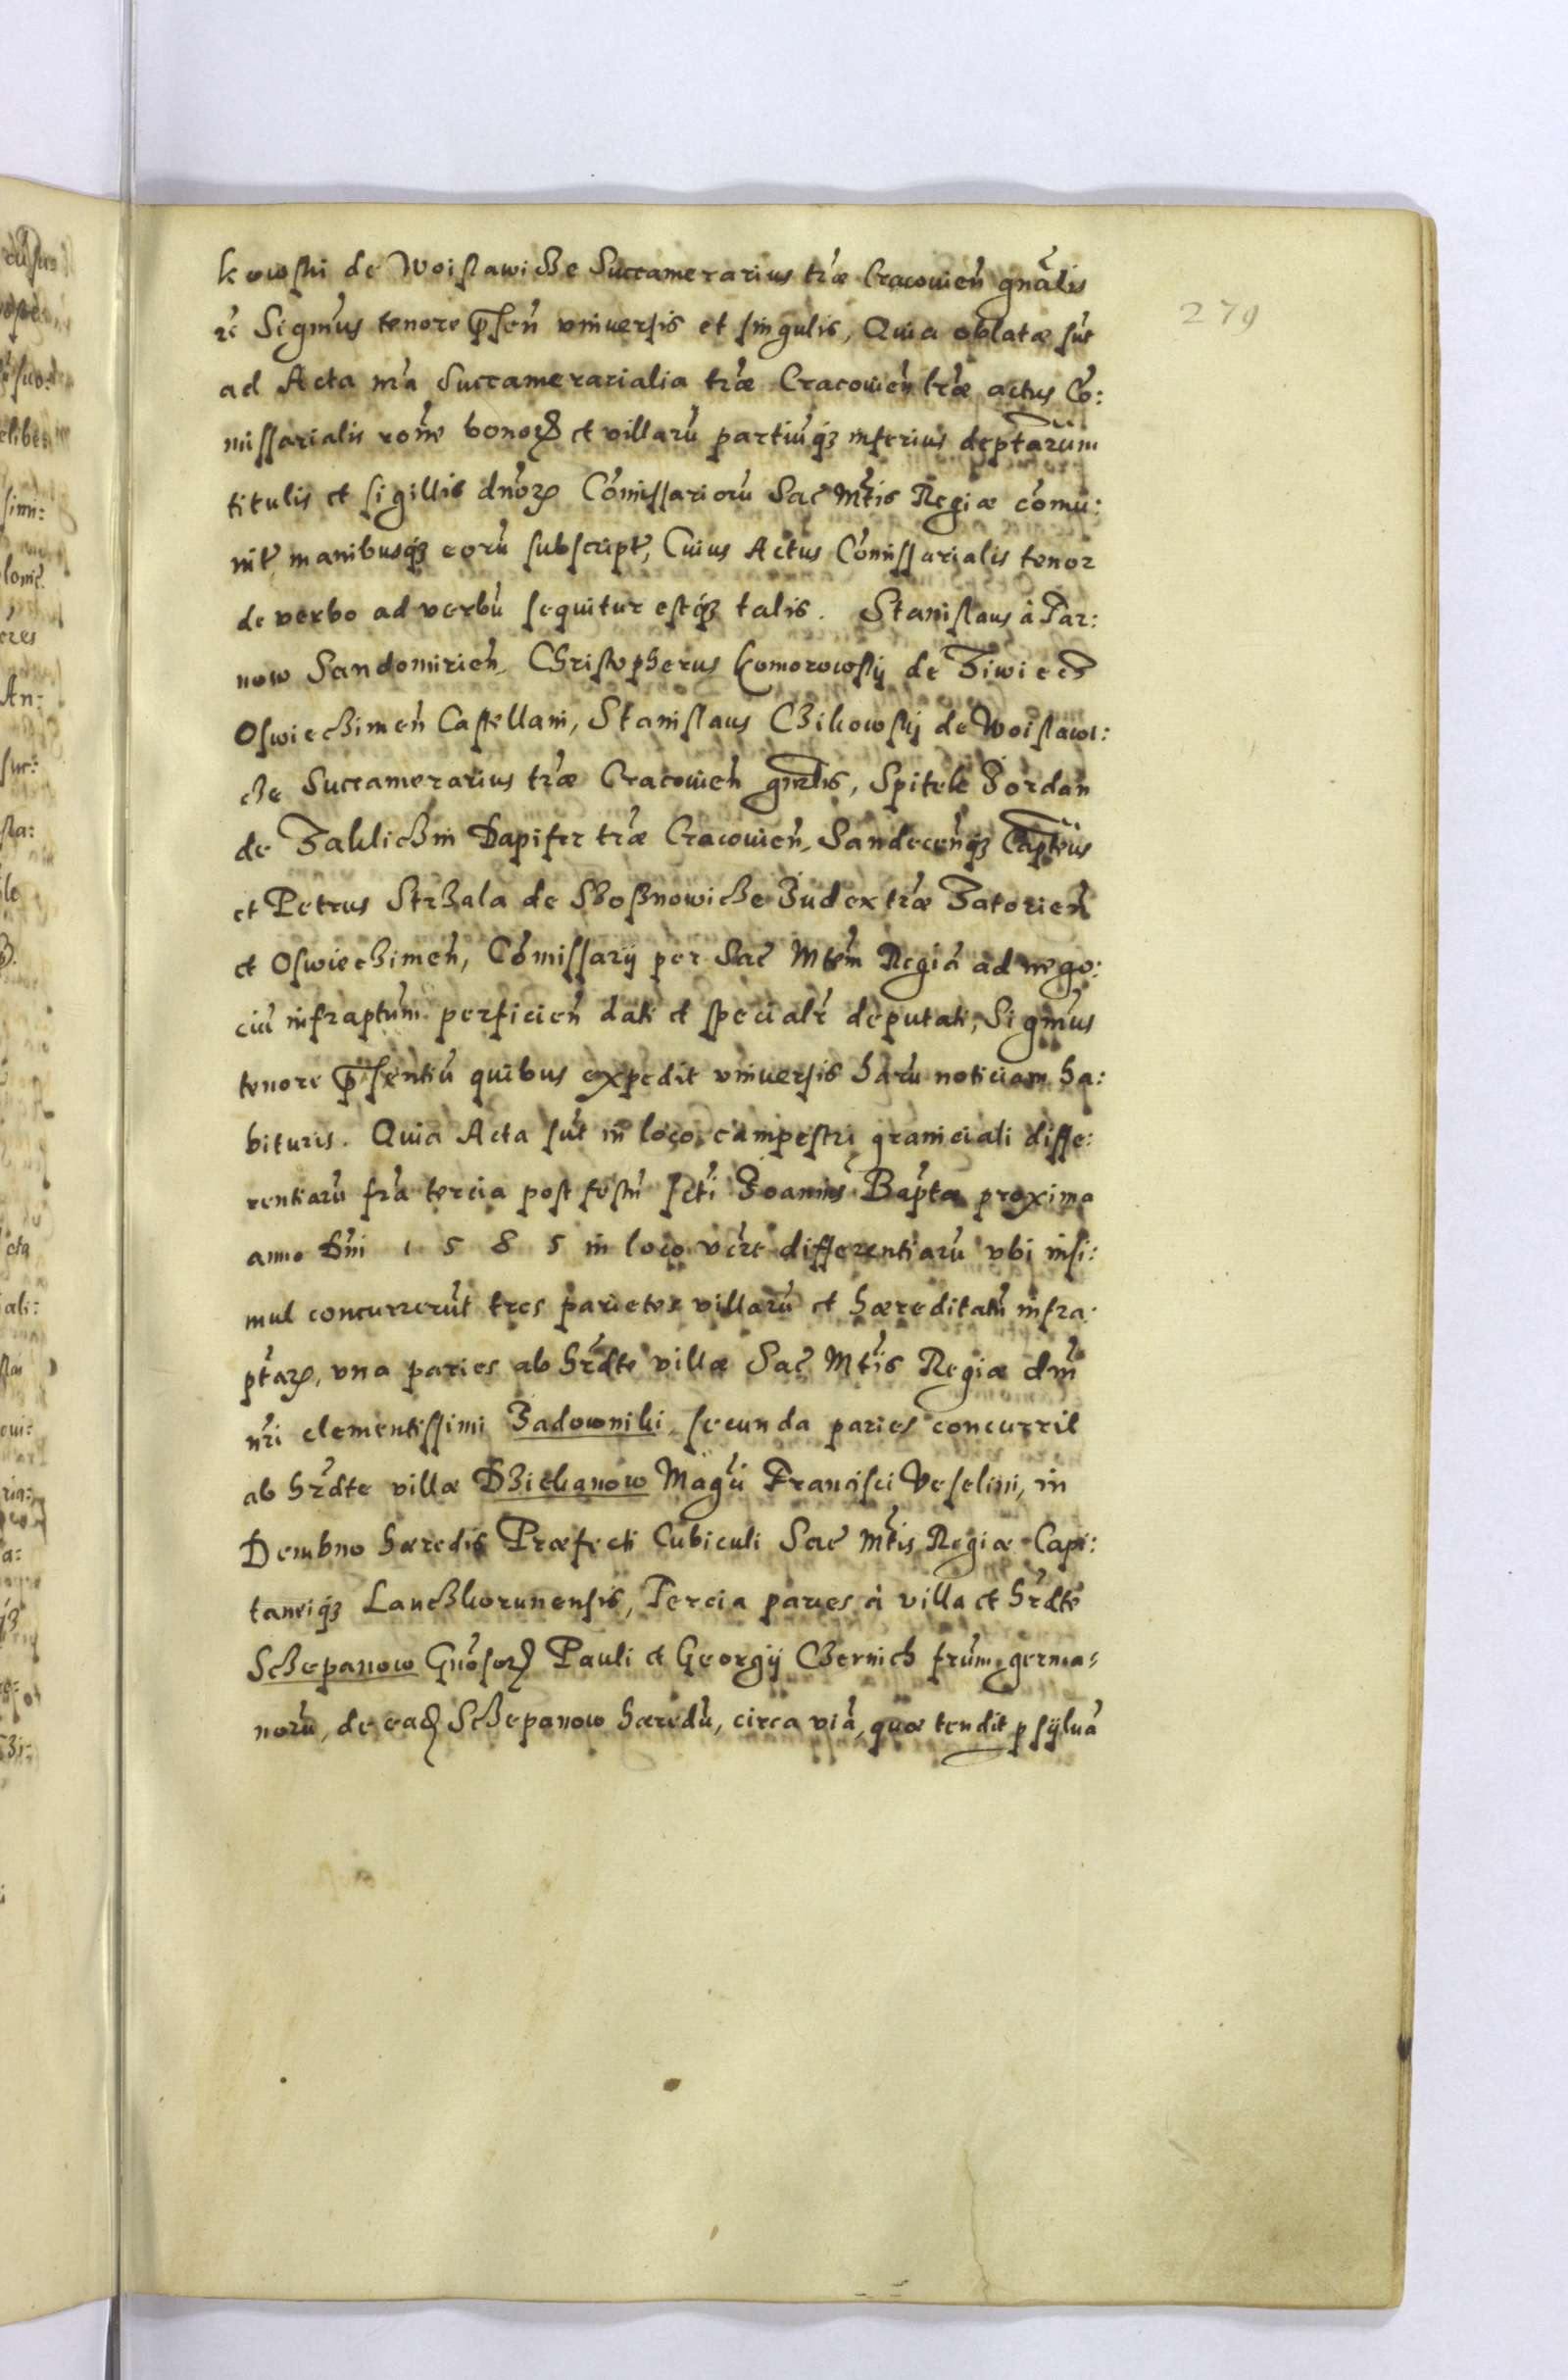 279
kowski de Woislawicze Succamerarius tr̃æ Cracouien̄ gn̄alis
rc̄ Sigm̃us tenore p̄sen̄ vniuersis et singulis, Quia oblatæ sūt
ad Acta nr̃a Succamerarialia tr̃æ Cracouien̄ lr̃æ actus Cō:
missarialis rōne bonoꝝ et villarū partiūqꝫ inferius dep̄tarum
titulis et sigillis dn̄oꝝ Cōmissariorū Sac̄ Mt̃is Regiæ cōmu:
nit̄, manibusqꝫ eorū subscript̄, Cuius Actus Cōmissarialis tenor
de verbo ad verbū sequitur estqꝫ talis. Stanislaus à Tar:
now Sandomirien̄, Christopherus Komorowsky de Ziwiecz
Oswieczimen̄ Castellani, Stanislaus Czikowskj de Woislawi:
cze Succamerarius tr̃æ Cracouien̄ gn̄alis, Spitek Jordan
de Zaklliczin Dapifer tr̃æ Cracouien̄, Sandecen̄qꝫ Capt̄eus
et Petrus Strzala de Szoßnowicze Judex tr̃æ Zatorien̄
et Oswieczimen̄, Cōmissarij per Sac̄ Mt̃em Regiā ad nego:
ciū infrap̄tum perficien̄ dati et specialr̃ deputati, Sigm̃us
tenore p̄sentiū quibus expedit vniuersis harū noticiam ha:
bituris. Quia Acta sūt in loco campestri graniciali diffe:
rentiarū fr̃a tercia post festū scti Joannis Bap̄tæ proxima
anno Dn̄i 1585 in loco vert̃ differentiarū vbi insi:
mul concurrerūt tres parietes villarū et hæreditatū infra:
p̄taꝝ, vna paries ab hr̃dte villæ Sac̄ Mt̃is Regiæ dn̄i
nr̃i clementissimi Zadowniki, secunda paries concurrit
ab hr̃dte villæ Dzickanow Magc̄i Francisci Veselini, in
Dembno hæredis Præfecti Cubiculi Sac̄ Mt̃is Regiæ Capi:
taneiqꝫ Lanczkorunensis, Tercia paries à villa et hr̃dte
Sczepanow Gn̄osoꝝ Pauli et Georgij Czernich frūm germa:
norū, de eadꝫ Sczepanow hæredū, circa viā, quæ tendit p̱ syluā